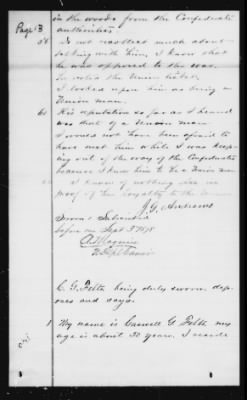 Page 3
in the woods from the Confederate
authorities.
58 I do not recollect much about
talking with him, I know that
he was opposed to the war.
He voted the Union ticket.
I looked upon him as being a
Union man.
60 His reputation so far as I heard
was that of a Union man
I would not have been afraid to
have met him while I was keep
ing out of the way of the Confederates
because I knew him to be a Union man
I know of nothing
proof of his loyalty to the
Sworn & Subscribed
before me Sept 3 1878
C. G. Felts being duly sworn, dep
oses and says.
1 My name is Caswell G. Felts, my
age is about 30 years. I reside